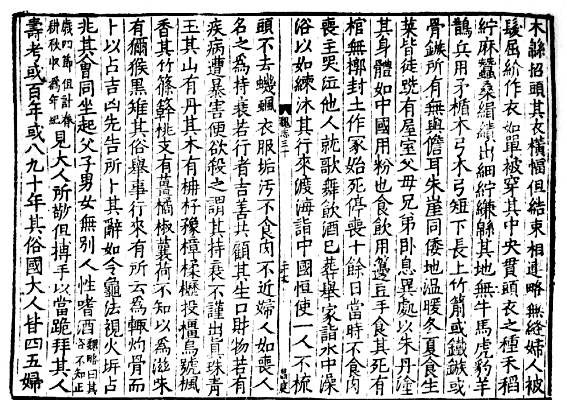 木緜招頭其衣橫幅但結束相連略無縫婦人被
髮屈紒作衣如單被穿其中央貫頭衣之種禾稻
紵麻蠶桑緝績出細紵縑緜其地無牛馬虎豹羊
鵲兵用矛楯木弓木弓短下長上竹箭或鐵鏃或
骨鏃所有無與儋耳朱崖同倭地溫暖冬夏食生
菜皆徒跣有屋室父母兄弟臥息異處以朱丹塗
其身體如中國用粉也食飲用籩豆手食其死有
棺無槨封土作冢始死停喪十餘日當時不食肉
喪主哭泣他人就歌舞飲酒已葬舉家詣水中澡
浴以如練沐其行來渡海詣中國恒使一人不梳
魏志三十
頭不去蟣蝨衣服垢汚不食肉不近婦人如喪人
名之為持衰若行者吉善共顧其生口財物若有
疾病遭暴害便欲殺之謂其持衰不謹出眞珠青
玉其山有丹其木有柟杼豫樟楺櫪投橿烏號楓
香其竹篠簳桃支有薑橘椒蘘荷不知以為滋味
有獮猴黑雉其俗舉事行來有所云為輒灼骨而
卜以占吉凶先告所卜其辭如令龜法視火坼占
兆其會同坐起父子男女無別人性嗜酒魏略曰其俗不知正
歲四節但計春耕秋收為年紀見大人所敬但搏手以當跪拜其人
壽考或百年或八九十年其俗國大人皆四五婦